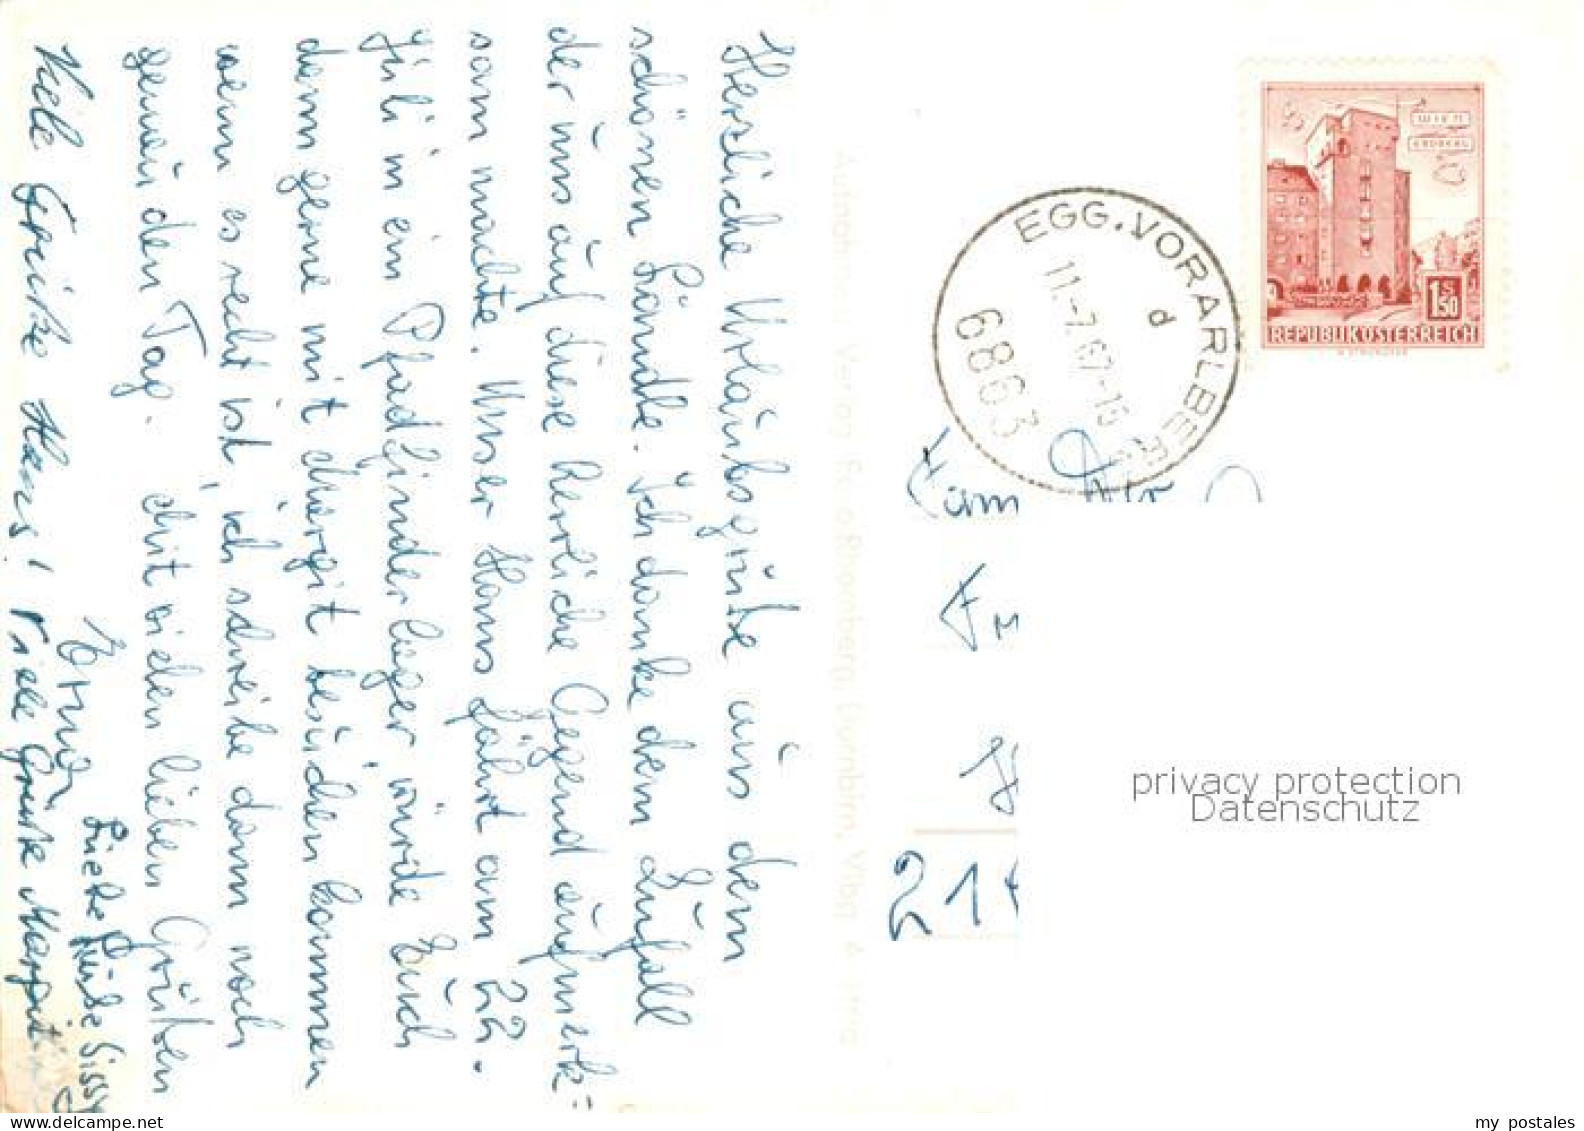 Herzliche Urlaubsgrüße aus dem
schönen Ländle. Ich danke dem Zufall
der uns auf diese herrliche Gegend aufmerk-
sam machte. Unser Hans fährt am 22.
Juli in ein Pfadfinderlager, würde Euch
dann gerne mit Margit besuchen kommen
wenn es recht ist, ich schreibe dann noch
genau den Tag. Mit vielen lieben Grüßen
Erna
Viele Grüße Hans!
Viele Grüße Margit
Liebe Grüße Sissy
EGG, VORARLBERG
11.-7.67-16
d
6863
WIEN
ERDBERG
1 S 50
REPUBLIK ÖSTERREICH
Fam
21
Aufnahme u. Verlag Risch-Lau
privacy protection
Datenschutz
my postales